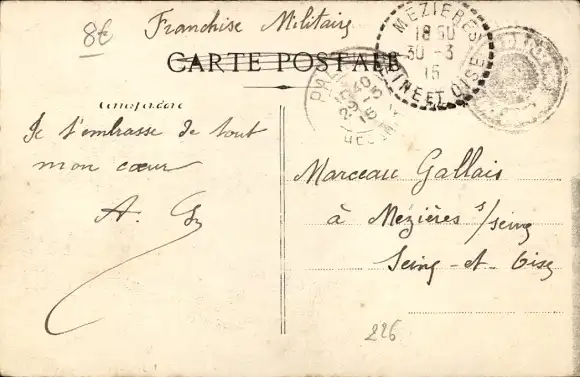 8€
Franchise Militaire
CARTE POSTALE
MÉZIÈRES
18 30
30 -3
16
SEINE ET OISE
Je t'embrasse de tout
mon cœur
A. G
Marceau Gallais
à Mézières s/seine
Seine-et-Oise
226